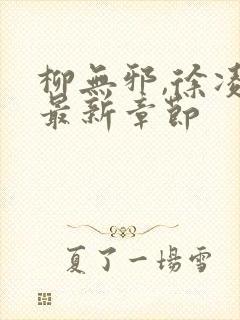 柳無邪,徐凌
最新章節
夏了一場雪